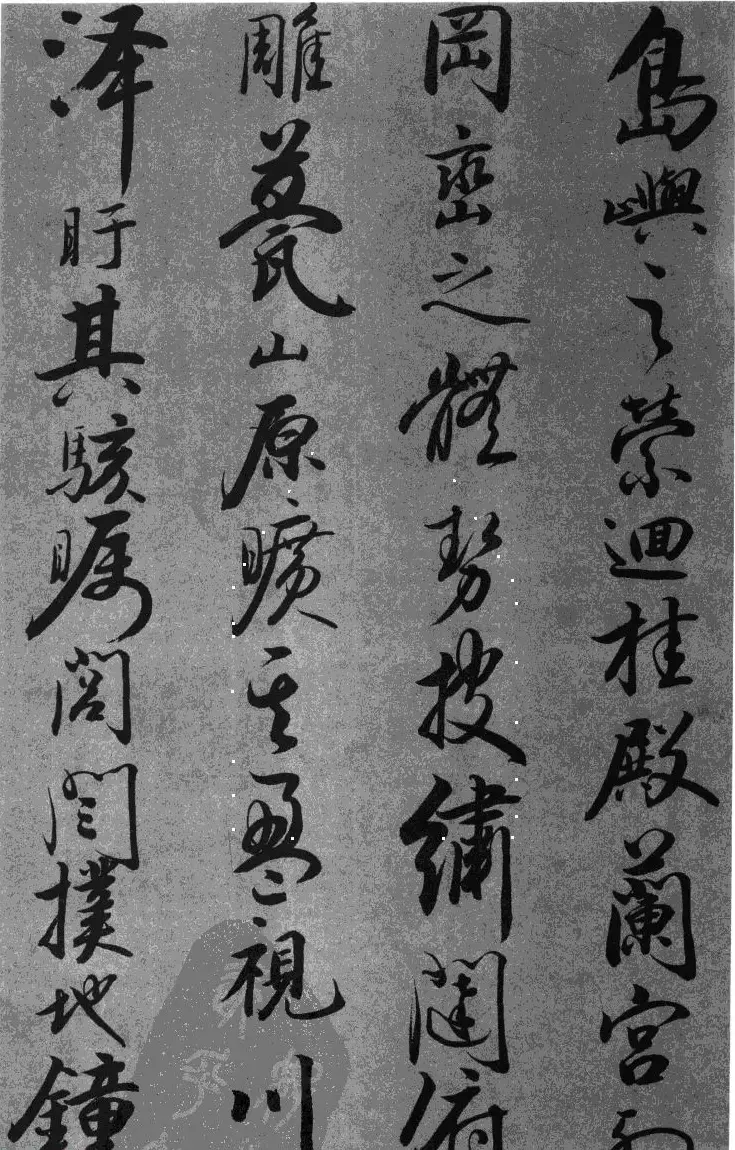 島嶼之縈迴桂殿蘭宮列
岡巒之體勢披繡闥俯
雕甍山原曠其盈視川
澤盱其駭矚閭閻撲地鐘